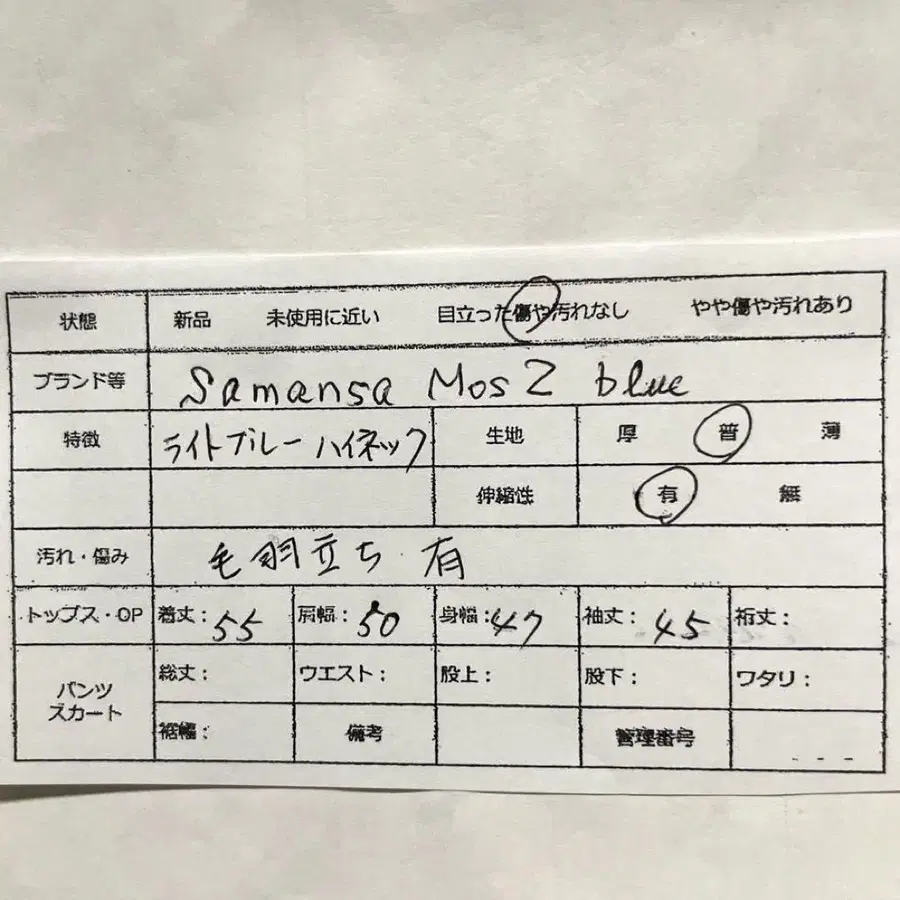 状態 新品 未使用に近い 目立った傷や汚れなし やや傷や汚れあり
ブランド等 Samansa Mos2 blue
特徴 ライトブルー ハイネック 生地 厚 普 薄
伸縮性 有 無
汚れ・傷み 毛羽立ち 有
トップス・OP 着丈: 55 肩幅: 50 身幅: 47 袖丈: 45 裄丈:
パンツ スカート 総丈: ウエスト: 股上: 股下: ワタリ:
裾幅: 備考 管理番号 - - -